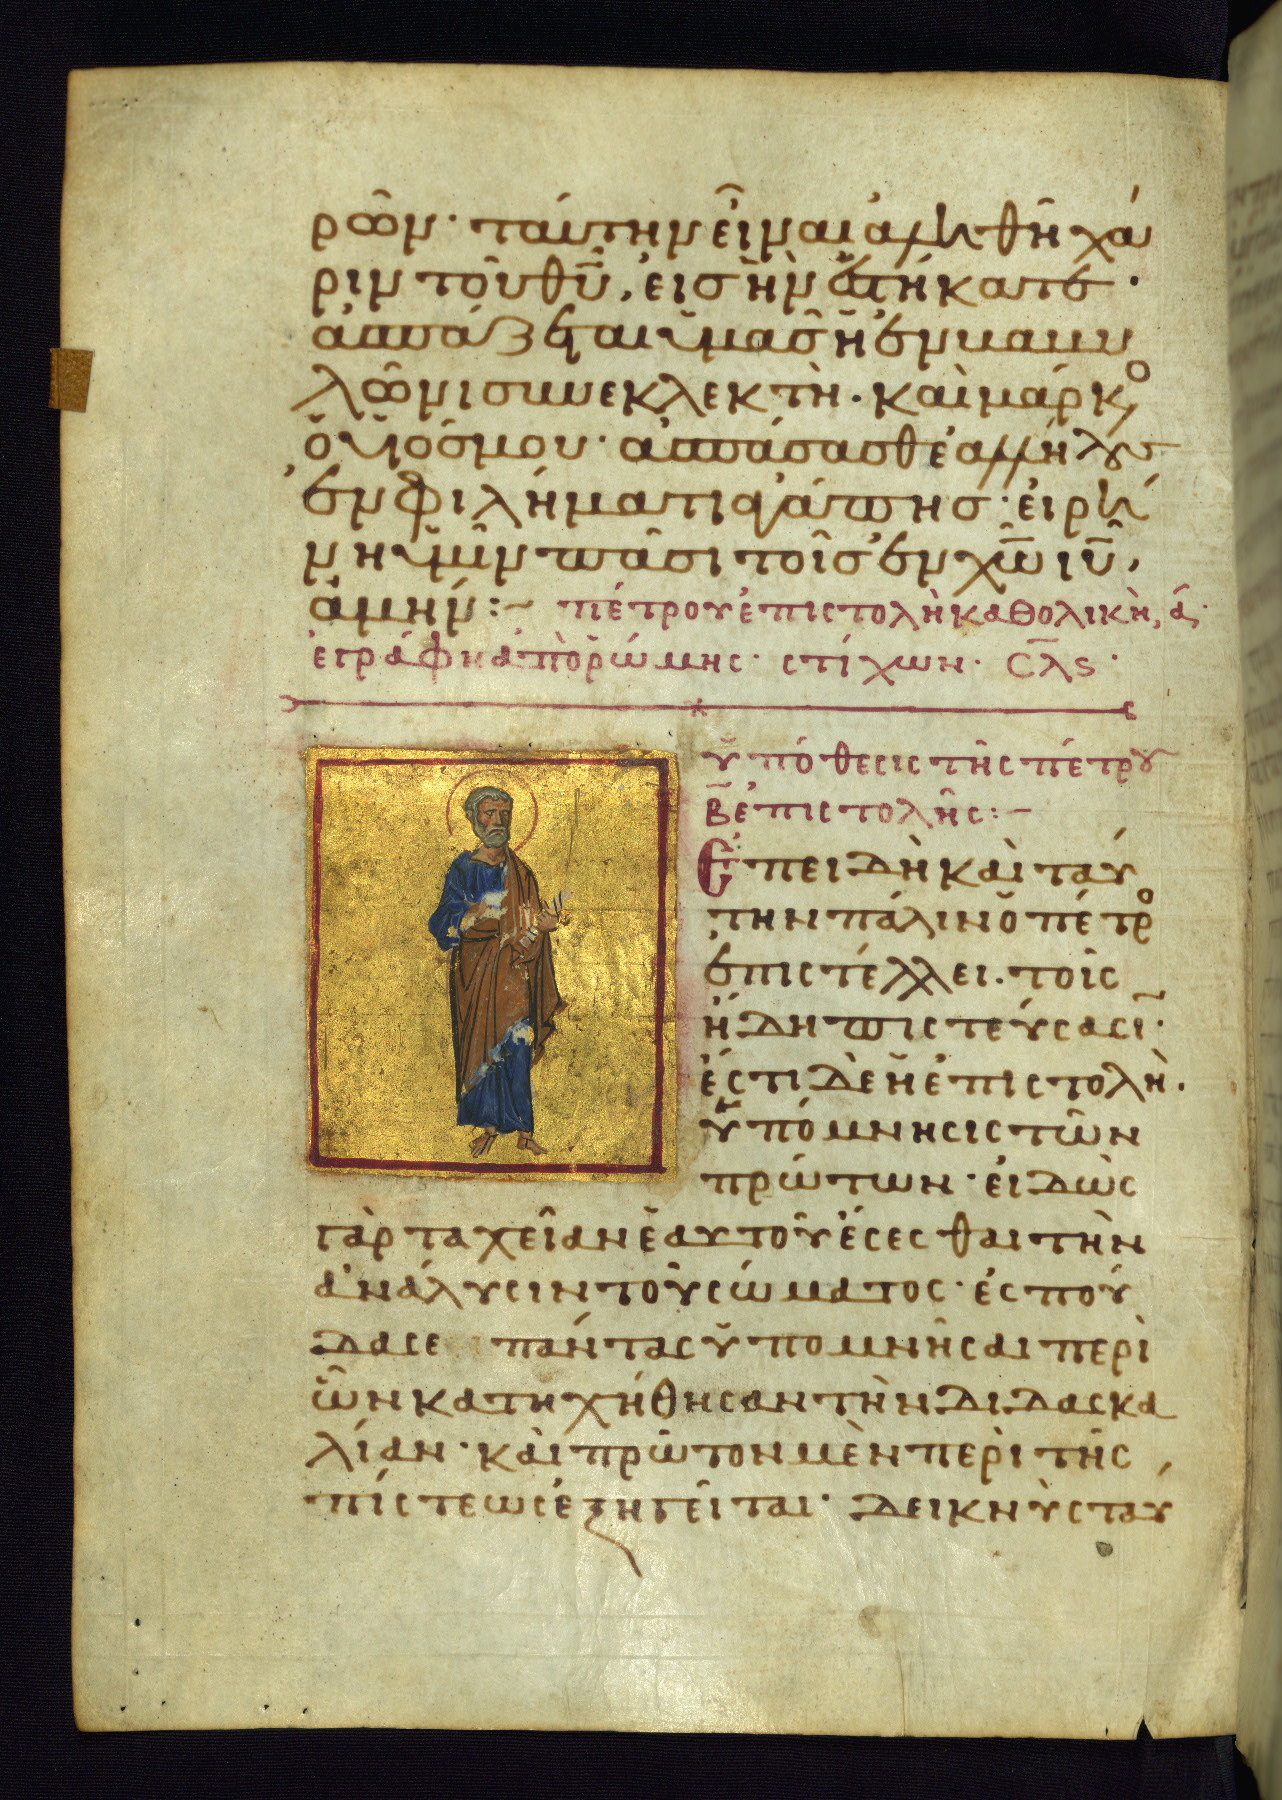 ρῶν· ταύτην εἶναι ἀληθῆ χά
ριν τοῦ θῦ, εἰς ἣν ἑστήκατε·
ἀσπάζεται ὑμᾶς ἡ ἐν βαβυ
λῶνι συνεκλεκτὴ· καὶ μάρκο
ὁ υἱός μου· ἀσπάσασθε ἀλλήλους
ἐν φιλήματι ἀγάπης· εἰρή
νη ὑμῖν πᾶσι τοῖς ἐν χῶ ιῦ,
ἀμήν:~ πέτρου ἐπιστολὴ καθολικὴ, α
ἐγράφη ἀπὸ ῥώμης· στίχων· σλς·
ὑπόθεσις τῆς πέτρου
β ἐπιστολῆς:~
Ἐπειδὴ καὶ ταύ
την πάλιν ὁ πέτρο
ἐπιστέλλει· τοῖς
ἤδη πιστεύσασι·
ἔστι δὲ ἡ ἐπιστολὴ·
ὑπόμνησις τῶν
πρώτων· εἰδὼς
γὰρ ταχεῖαν ἑαυτοῦ ἔσεσθαι τὴν
ἀνάλυσιν τοῦ σώματος· ἐσπού
δασε πάντας ὑπομνῆσαι περὶ
ὧν κατηχήθησαν τὴν διδασκα
λίαν· καὶ πρῶτον μὲν περὶ τῆς
πίστεως ἐξηγεῖται· δεικνὺς ταύ